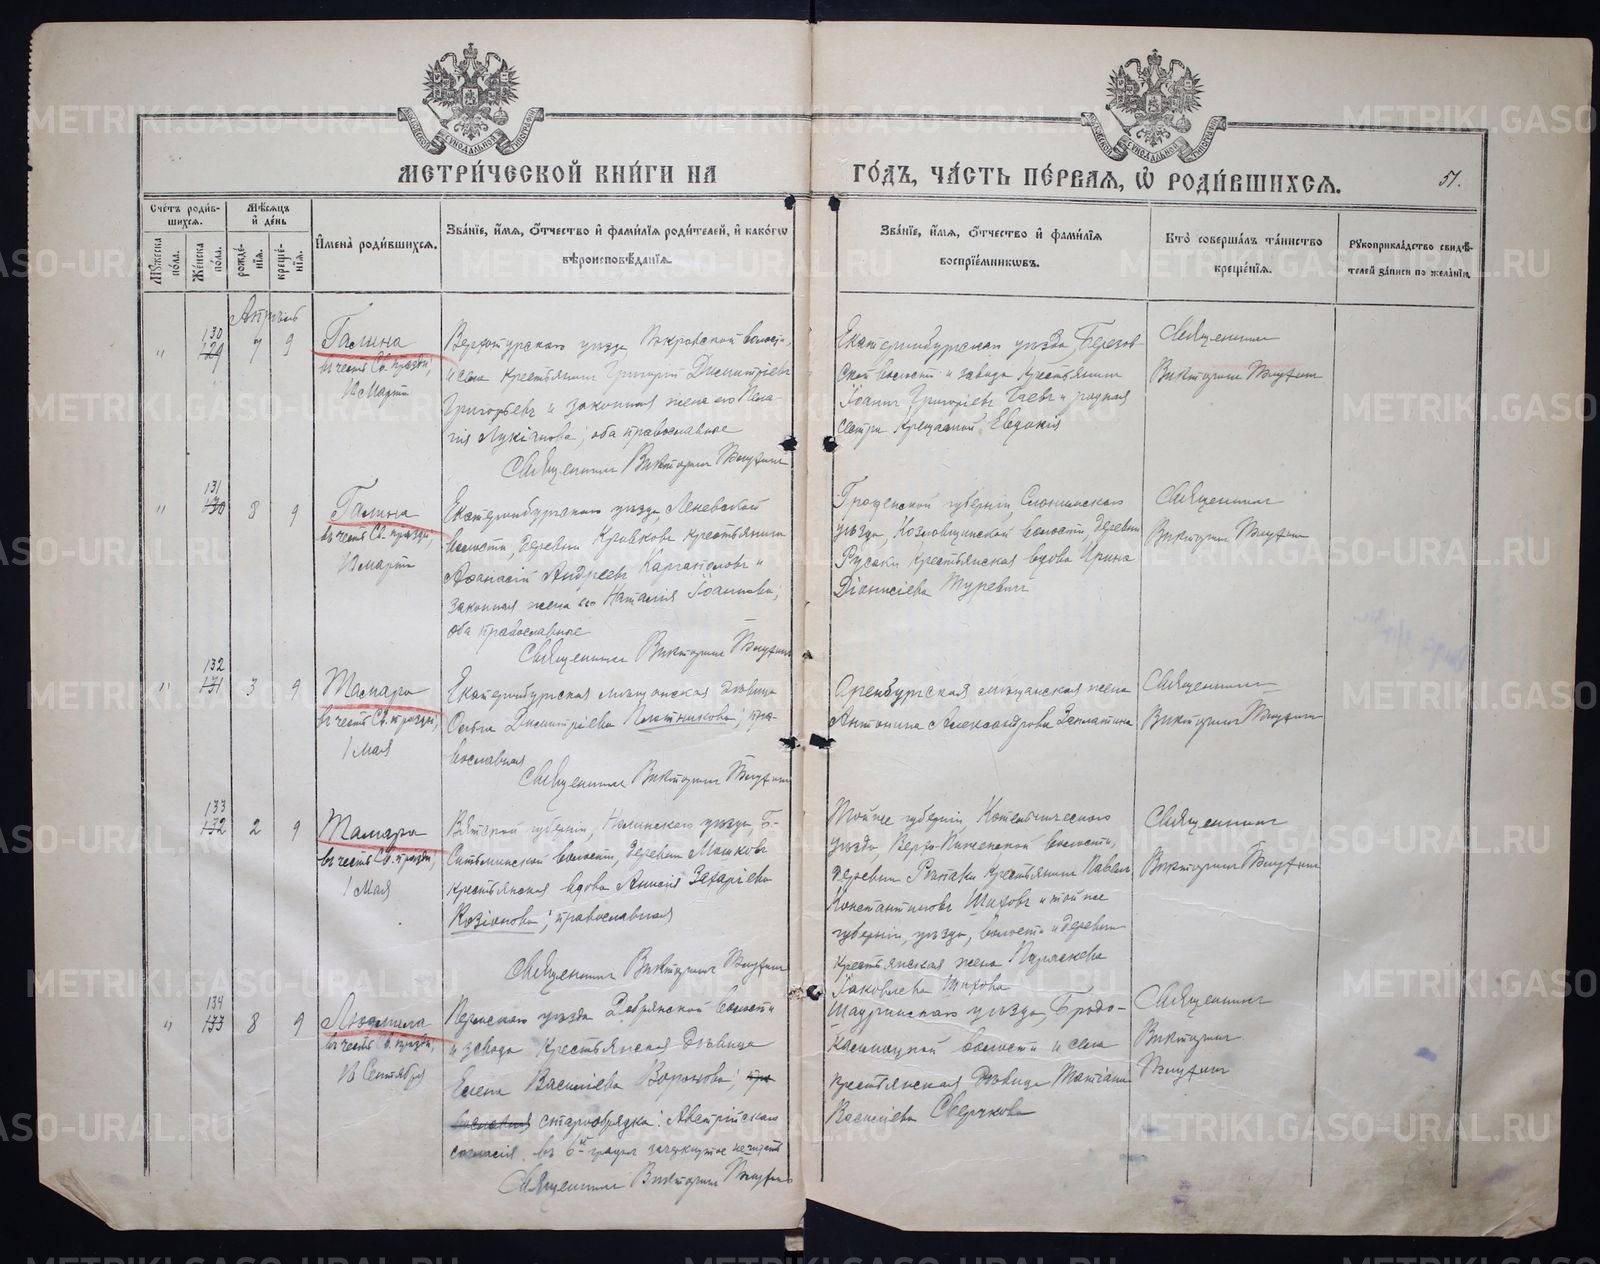 МЕТРИЧЕСКОЙ КНИГИ НА
ГОДЪ, ЧАСТЬ ПЕРВАЯ, Ѿ РОДИВШИХСЯ.
51.
Счетъ родив-
шихся.
Мѣсяцъ
и день
Мужеска
пола.
Женска
пола.
рожде-
нія.
креще-
нія.
Имена родившихся.
Званіе, имя, отчество и фамилія родителей, и какогѡ
вѣроисповѣданія.
Званіе, имя, отчество и фамилія
воспріемникѡвъ.
Кто совершалъ таинство
крещенія.
Рукоприкладство свидѣ-
телей записи по желанію.
Апрѣль
130
129
7
9
Галина
въ честь Св. празд,
10 Марта
Верхотурскаго уѣзда, волости,
и села крестьянинъ Григорій Димитріевъ
Григорьевъ и законная жена его Пела-
гія Лукіанова; оба православные
Священникъ Викторинъ
Екатеринбургскаго уѣзда, Березов-
ской волости и завода крестьянинъ
Іоаннъ Григоріевъ и родная
сестра крещаемой Евдокія
Священникъ
Викторинъ
131
130
8
9
Галина
въ честь Св. празд,
10 Марта
Екатеринбургскаго уѣзда,
волости, деревни крестьянинъ
Аѳанасій Андреевъ и
законная жена его Наталія Іоаннова;
оба православные
Священникъ Викторинъ
Гродненской губерніи, Слонимскаго
уѣзда, Козловщинской волости, деревни
Русаки крестьянская вдова Ирина
Діонисіева Туревичъ
Священникъ
Викторинъ
132
131
3
9
Тамара
въ честь Св. празд,
1 Мая
Екатеринбургская мѣщанская дѣвица
Димитріева Плотникова; пра-
вославная
Священникъ Викторинъ
Оренбургская мѣщанская жена
Антонина Александрова Заплатина
Священникъ
Викторинъ
133
132
2
9
Тамара
въ честь Св. празд,
1 Мая
Вятской губерніи, Нолинскаго уѣзда, Б-
Ситьминской волости, деревни
крестьянская вдова Анисія Захаріева
православная
Священникъ Викторинъ
Той же губерніи Котельническаго
уѣзда, волости,
деревни крестьянинъ Павелъ
Константиновъ Шаховъ и той же
губерніи, уѣзда, волости и деревни
крестьянская жена Параскева
Іаковлева Шахова
Священникъ
Викторинъ
134
133
8
9
Людмила
въ честь Св. празд,
16 Сентября
Пермскаго уѣзда Добрянской волости
и завода крестьянская дѣвица
Елена Василіева Воронова; пра
вославная старообрядка Австрійскаго
согласія. въ 6й графѣ зачеркнутое не читать
Священникъ Викторинъ
Шадринскаго уѣзда,
волости и села
крестьянская дѣвица Татіана
Василіева Сверчкова
Священникъ
Викторинъ
METRIKI.GASO-URAL.RU